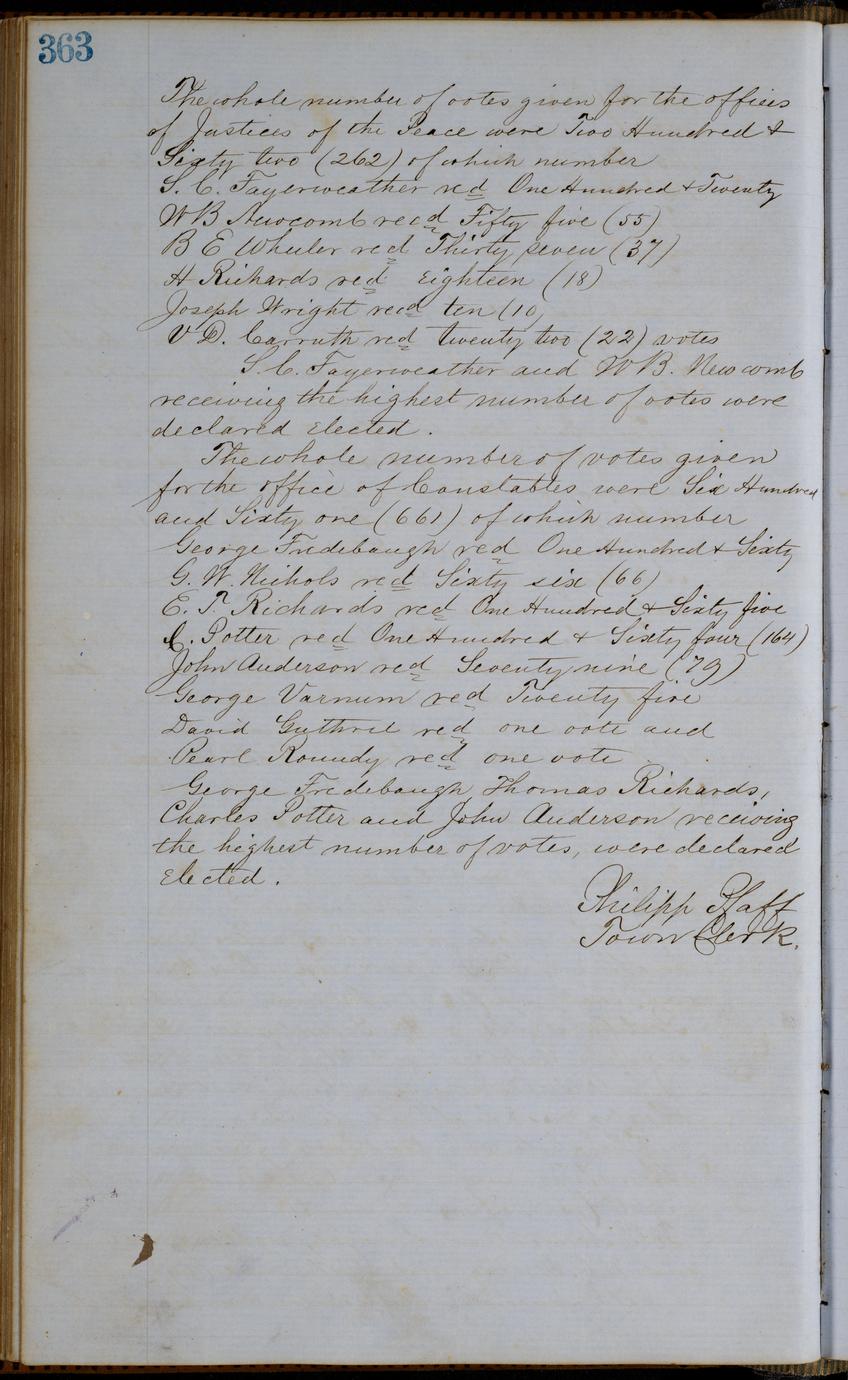 363
The whole number of votes given for the offices
of Justices of the Peace were Two Hundred &
Sixty two (262) of which number
S. C. Fayerweather recd One Hundred & Twenty
W B Newcomb recd Fifty five (55)
B E Wheeler recd Thirty seven (37)
H Richards recd Eighteen (18)
Joseph Wright recd ten (10)
V D. Carruth recd twenty two (22) votes
S. C. Fayerweather and W B. Newcomb
receiving the highest number of votes were
declared Elected.
The whole number of votes given
for the office of Constables were Six Hundred
and Sixty one (661) of which number
George Fredebaugh recd One Hundred & Sixty
G. W. Nichols recd Sixty six (66)
E. T. Richards recd One Hundred & Sixty five
C. Potter recd One Hundred & Sixty four (164)
John Anderson recd Seventy nine (79)
George Varnum recd Twenty five
David Guthrie recd one vote and
Pearl Roundy recd one vote
George Fredebaugh Thomas Richards,
Charles Potter and John Anderson receiving
the highest number of votes, were declared
Elected.
Philipp Pfaff
Town Clerk.